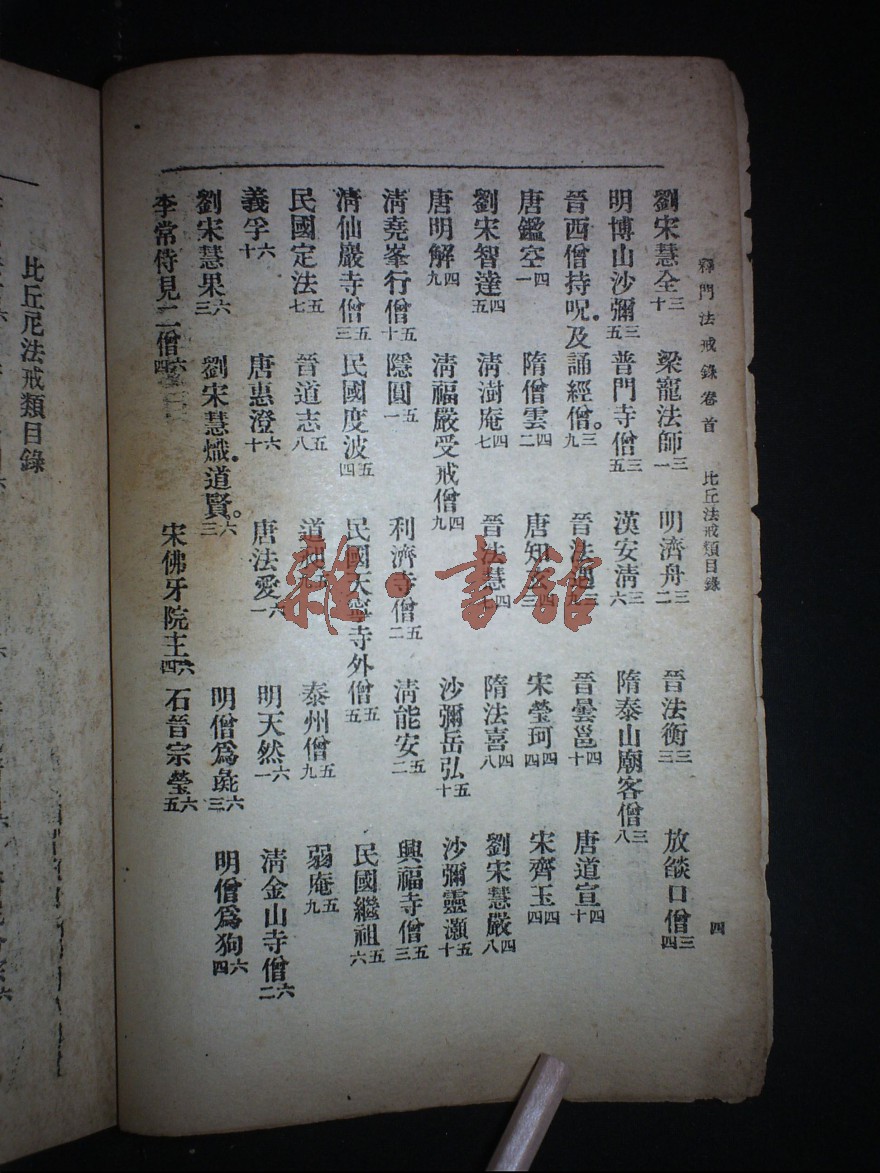 釋門法戒錄卷首 比丘法戒類目錄 四
劉宋慧全三十 梁寵法師三一 明濟舟三二 晉法衡三三 放燄口僧三四
明博山沙彌三五 普門寺僧三五 漢安淸三六 隋泰山廟客僧三八
晉西僧持呪。及誦經僧。三九 晉法遇 晉曇邕四十 唐道宣四十
唐鑑空四一 隋僧雲四二 唐知玄四三 宋瑩珂四四 宋齊玉四四
劉宋智達四五 淸澍庵四七 晉法慧 隋法喜四八 劉宋慧嚴四八
唐明解四九 淸福嚴受戒僧四九 沙彌岳弘五十 沙彌靈灝五十
淸堯峯行僧五十 隱圓五一 利濟寺僧五二 淸能安五二 興福寺僧五三
淸仙巖寺僧五三 民國度波五四 民國天寧寺外僧五五 民國繼祖五六
民國定法五七 晉道志五八 道 泰州僧五九 弱庵五九
義孚六十 唐惠澄六十 唐法愛六一 明天然六一 淸金山寺僧六二
劉宋慧果六三 劉宋慧熾。道賢。六三 明僧爲彘六三 明僧爲狗六四
李常侍見二僧六四 宋佛牙院主六四 石晉宗瑩六五
比丘尼法戒類目錄
雜·書館